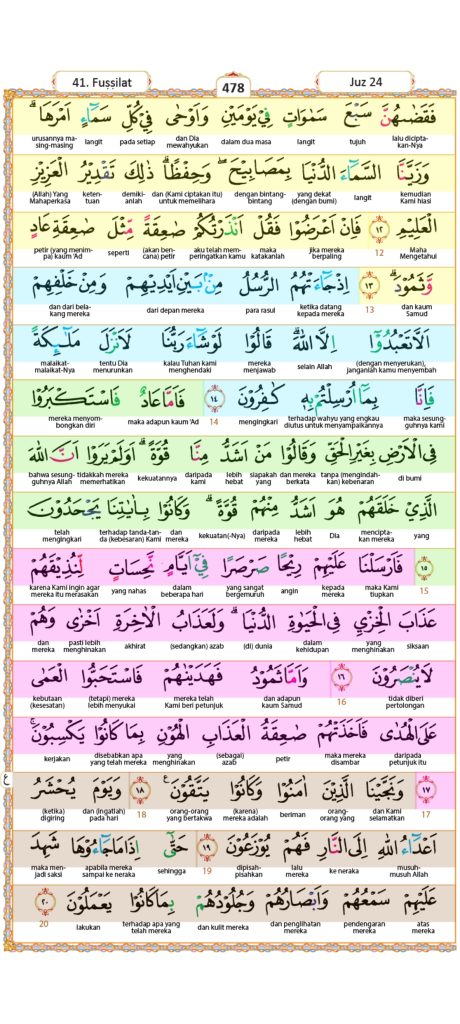 41. Fuṣṣilat
478
Juz 24
فَقَضٰىهُنَّ سَبْعَ سَمٰوَاتٍ فِيْ يَوْمَيْنِ وَاَوْحٰى فِيْ كُلِّ سَمَاۤءٍ اَمْرَهَا ۗ
lalu diciptakan-Nya tujuh langit dalam dua masa dan Dia mewahyukan pada setiap langit urusannya masing-masing
وَزَيَّنَّا السَّمَاۤءَ الدُّنْيَا بِمَصَابِيْحَۖ وَحِفْظًا ۗ ذٰلِكَ تَقْدِيْرُ الْعَزِيْزِ
kemudian Kami hiasi langit yang dekat (dengan bumi) dengan bintang-bintang dan (Kami ciptakan itu) untuk memelihara demikianlah ketentuan (Allah) Yang Mahaperkasa
الْعَلِيْمِ ١٢ فَاِنْ اَعْرَضُوْا فَقُلْ اَنْذَرْتُكُمْ صٰعِقَةً مِّثْلَ صٰعِقَةِ عَادٍ
Maha Mengetahui 12 jika mereka berpaling maka katakanlah aku telah memperingatkan kamu (akan bencana) petir seperti petir (yang menimpa) kaum 'Ad
وَّثَمُوْدَ ۗ ١٣ اِذْ جَاۤءَتْهُمُ الرُّسُلُ مِنْۢ بَيْنِ اَيْدِيْهِمْ وَمِنْ خَلْفِهِمْ
dan kaum Samud 13 ketika datang kepada mereka para rasul dari depan mereka dan dari belakang mereka
اَلَّا تَعْبُدُوْٓا اِلَّا اللّٰهَ ۗ قَالُوْا لَوْ شَاۤءَ رَبُّنَا لَاَنْزَلَ مَلٰۤىِٕكَةً
(dengan menyerukan), janganlah kamu menyembah selain Allah mereka menjawab kalau Tuhan kami menghendaki tentu Dia menurunkan malaikat-malaikat-Nya
فَاِنَّا بِمَآ اُرْسِلْتُمْ بِهٖ كٰفِرُوْنَ ١٤ فَاَمَّا عَادٌ فَاسْتَكْبَرُوْا
maka sesungguhnya kami terhadap wahyu yang engkau diutus untuk menyampaikannya mengingkari 14 maka adapun kaum 'Ad mereka menyombongkan diri
فِى الْاَرْضِ بِغَيْرِ الْحَقِّ وَقَالُوْا مَنْ اَشَدُّ مِنَّا قُوَّةً ۗ اَوَلَمْ يَرَوْا اَنَّ اللّٰهَ
di bumi tanpa (mengindahkan) kebenaran dan mereka berkata siapakah yang lebih hebat daripada kami kekuatannya tidakkah mereka memerhatikan bahwa sesungguhnya Allah
الَّذِيْ خَلَقَهُمْ هُوَ اَشَدُّ مِنْهُمْ قُوَّةً ۗ وَكَانُوْا بِاٰيٰتِنَا يَجْحَدُوْنَ
yang menciptakan mereka Dia lebih hebat daripada mereka kekuatan(-Nya) dan mereka terhadap tanda-tanda (kebesaran) Kami telah mengingkari
١٥ فَاَرْسَلْنَا عَلَيْهِمْ رِيْحًا صَرْصَرًا فِيْٓ اَيَّامٍ نَّحِسَاتٍ لِّنُذِيْقَهُمْ
15 maka Kami tiupkan kepada mereka angin yang sangat bergemuruh dalam beberapa hari yang nahas karena Kami ingin agar mereka itu merasakan
عَذَابَ الْخِزْيِ فِى الْحَيٰوةِ الدُّنْيَا ۗ وَلَعَذَابُ الْاٰخِرَةِ اَخْزٰى وَهُمْ
siksaan yang menghinakan dalam kehidupan (di) dunia (sedangkan) azab akhirat pasti lebih menghinakan dan mereka
لَا يُنْصَرُوْنَ ١٦ وَاَمَّا ثَمُوْدُ فَهَدَيْنٰهُمْ فَاسْتَحَبُّوا الْعَمٰى
tidak diberi pertolongan 16 dan adapun kaum Samud mereka telah Kami beri petunjuk (tetapi) mereka lebih menyukai kebutaan (kesesatan)
عَلَى الْهُدٰى فَاَخَذَتْهُمْ صٰعِقَةُ الْعَذَابِ الْهُوْنِ بِمَا كَانُوْا يَكْسِبُوْنَ ۚ
daripada petunjuk itu maka mereka disambar petir (sebagai) azab yang menghinakan disebabkan apa yang telah mereka kerjakan
ع
١٧ وَنَجَّيْنَا الَّذِيْنَ اٰمَنُوْا وَكَانُوْا يَتَّقُوْنَ ࣖ ١٨ وَيَوْمَ يُحْشَرُ
17 dan Kami selamatkan orang-orang yang beriman (karena) mereka adalah orang-orang yang bertakwa 18 dan (ingatlah) pada hari (ketika) digiring
اَعْدَاۤءُ اللّٰهِ اِلَى النَّارِ فَهُمْ يُوْزَعُوْنَ ١٩ حَتّٰىٓ اِذَا مَا جَاۤءُوْهَا شَهِدَ
musuh-musuh Allah ke neraka lalu mereka dipisah-pisahkan 19 sehingga apabila mereka sampai ke neraka maka menjadi saksi
عَلَيْهِمْ سَمْعُهُمْ وَاَبْصَارُهُمْ وَجُلُوْدُهُمْ بِمَا كَانُوْا يَعْمَلُوْنَ ٢٠
atas mereka pendengaran mereka dan penglihatan mereka dan kulit mereka terhadap apa yang telah mereka lakukan 20